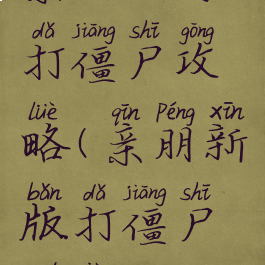 dǎ jiāng shī gōng
打僵尸攻
lüè qīn Péng xīn
略(亲朋新
bǎn dǎ jiāng shī
版打僵尸